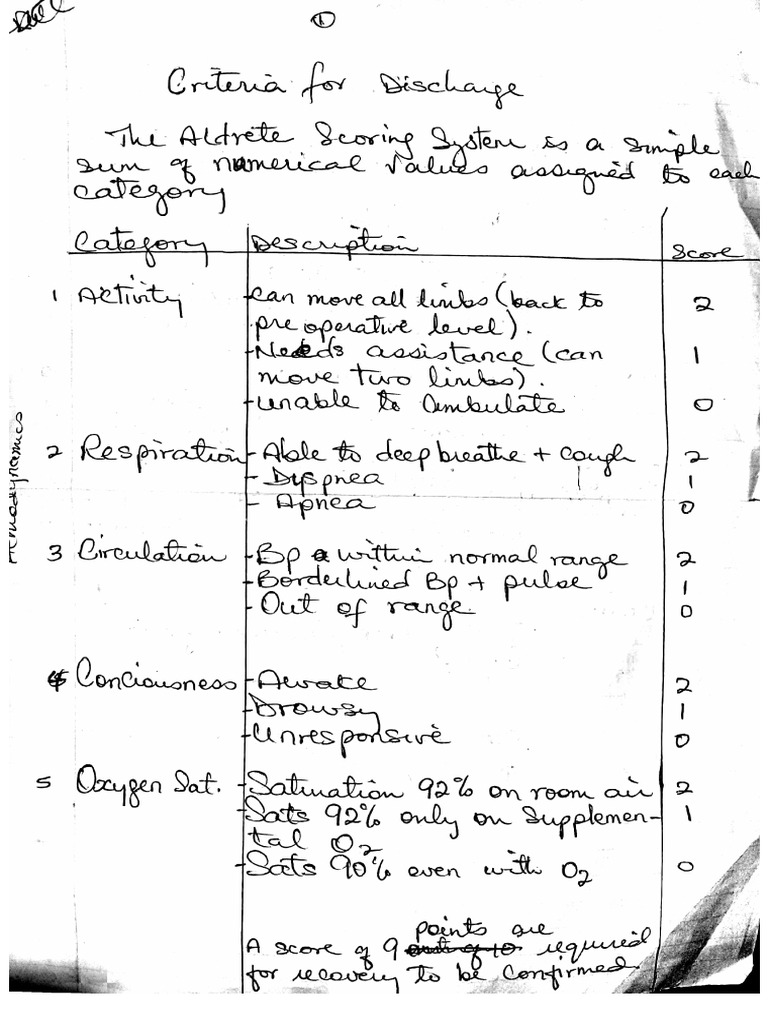 ①
Criteria for Discharge
The Aldrete Scoring System is a simple
sum of numerical values assigned to each
category
Category Description Score
1 Activity -can move all limbs (back to 2
pre operative level).
-Needs assistance (can 1
move two limbs).
-unable to ambulate 0
Hemodynamics
2 Respiration -Able to deep breathe + cough 2
-Dyspnea 1
-Apnea 0
3 Circulation -Bp within normal range 2
-Borderlined Bp + pulse 1
-Out of range. 0
4 Conciousness -Awake 2
-Drowsy 1
-Unresponsive 0
5 Oxygen Sat. -Saturation 92% on room air 2
-Sats 92% only on Supplemen- 1
tal O2
-Sats 90% even with O2 0
points are
A score of 9 out of 10 required
for recovery to be confirmed.